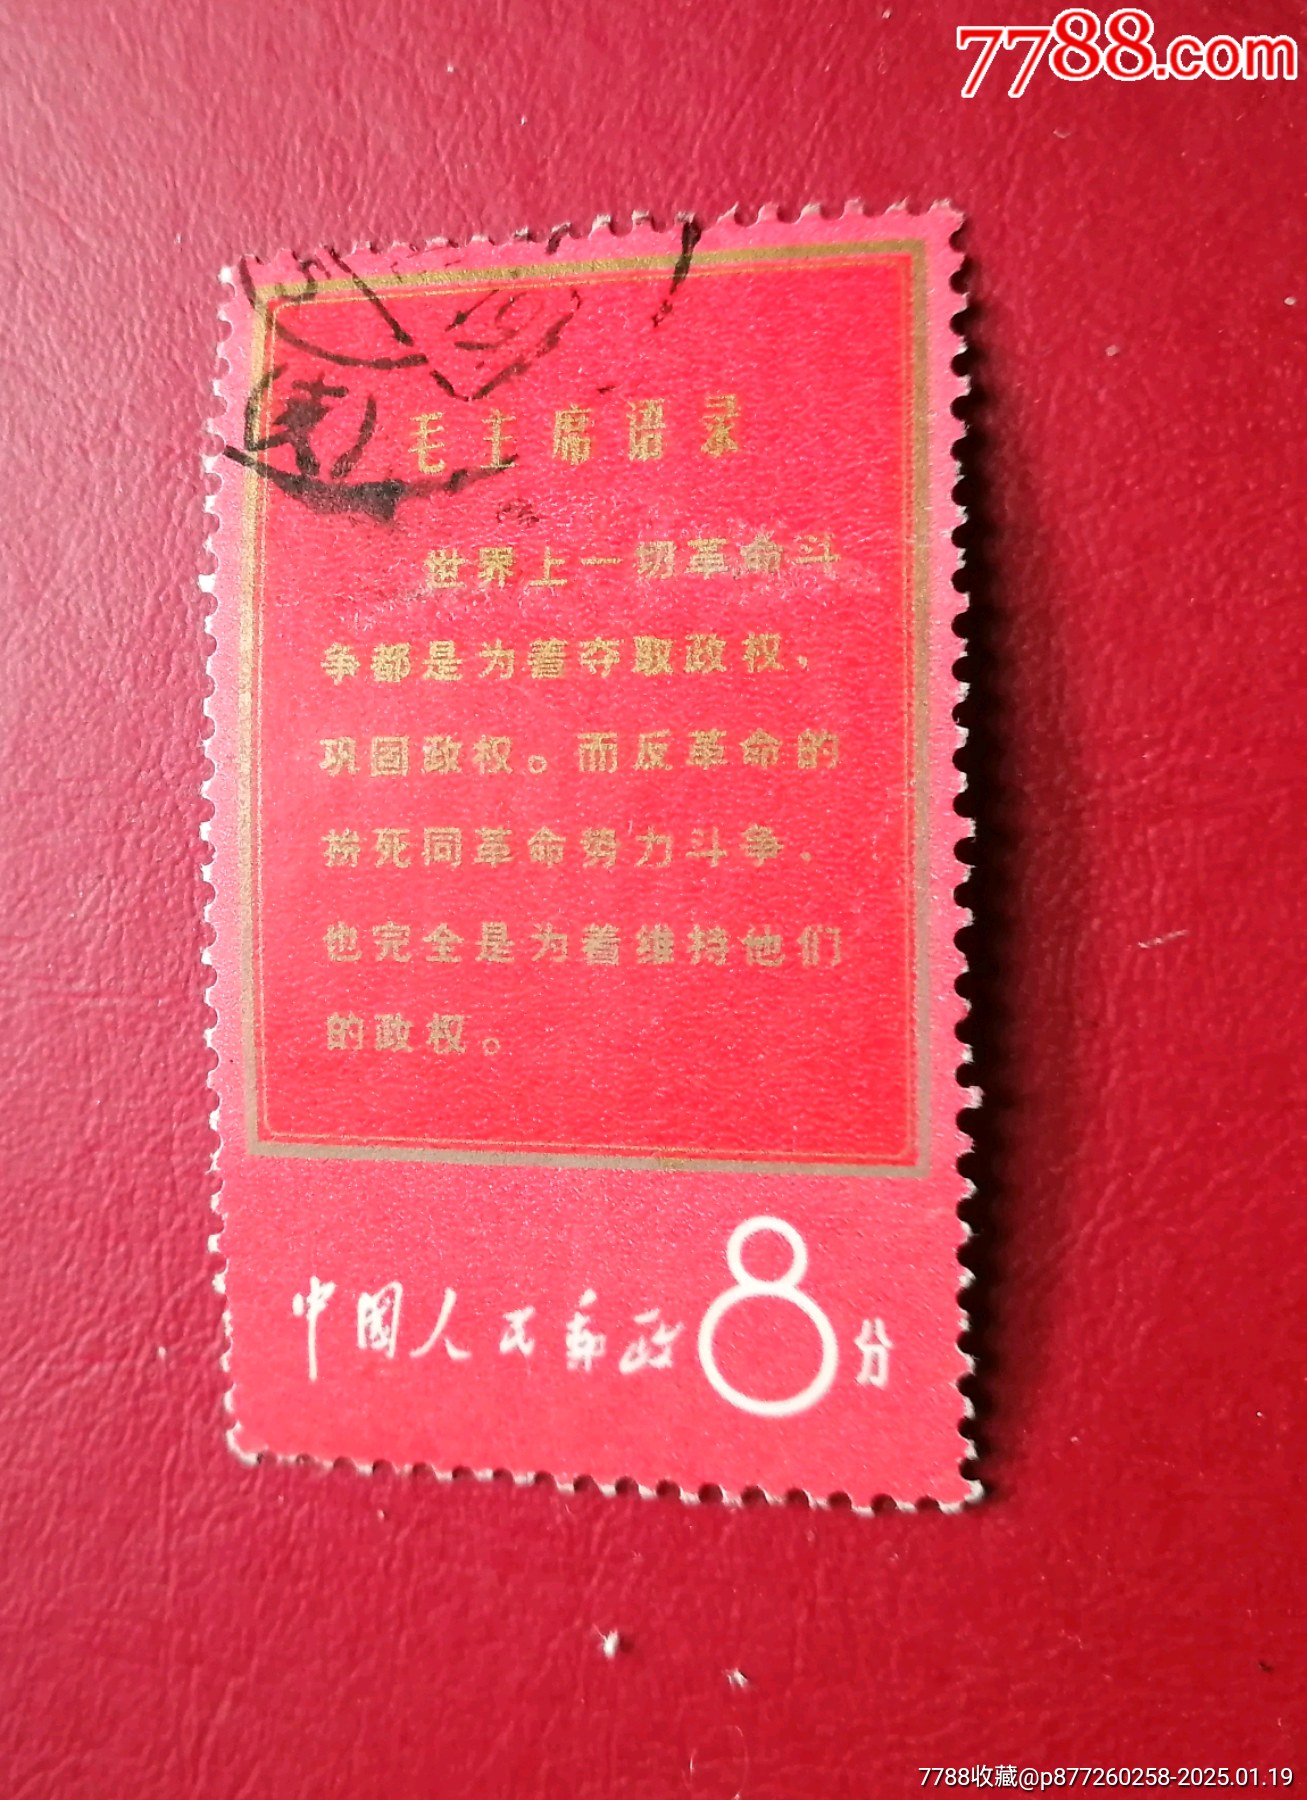 7788.com
毛主席语录
世界上一切革命斗
争都是为着夺取政权，
巩固政权。而反革命的
拚死同革命势力斗争，
也完全是为着维持他们
的政权。
中国人民邮政8分
7788收藏@p877260258-2025.01.19